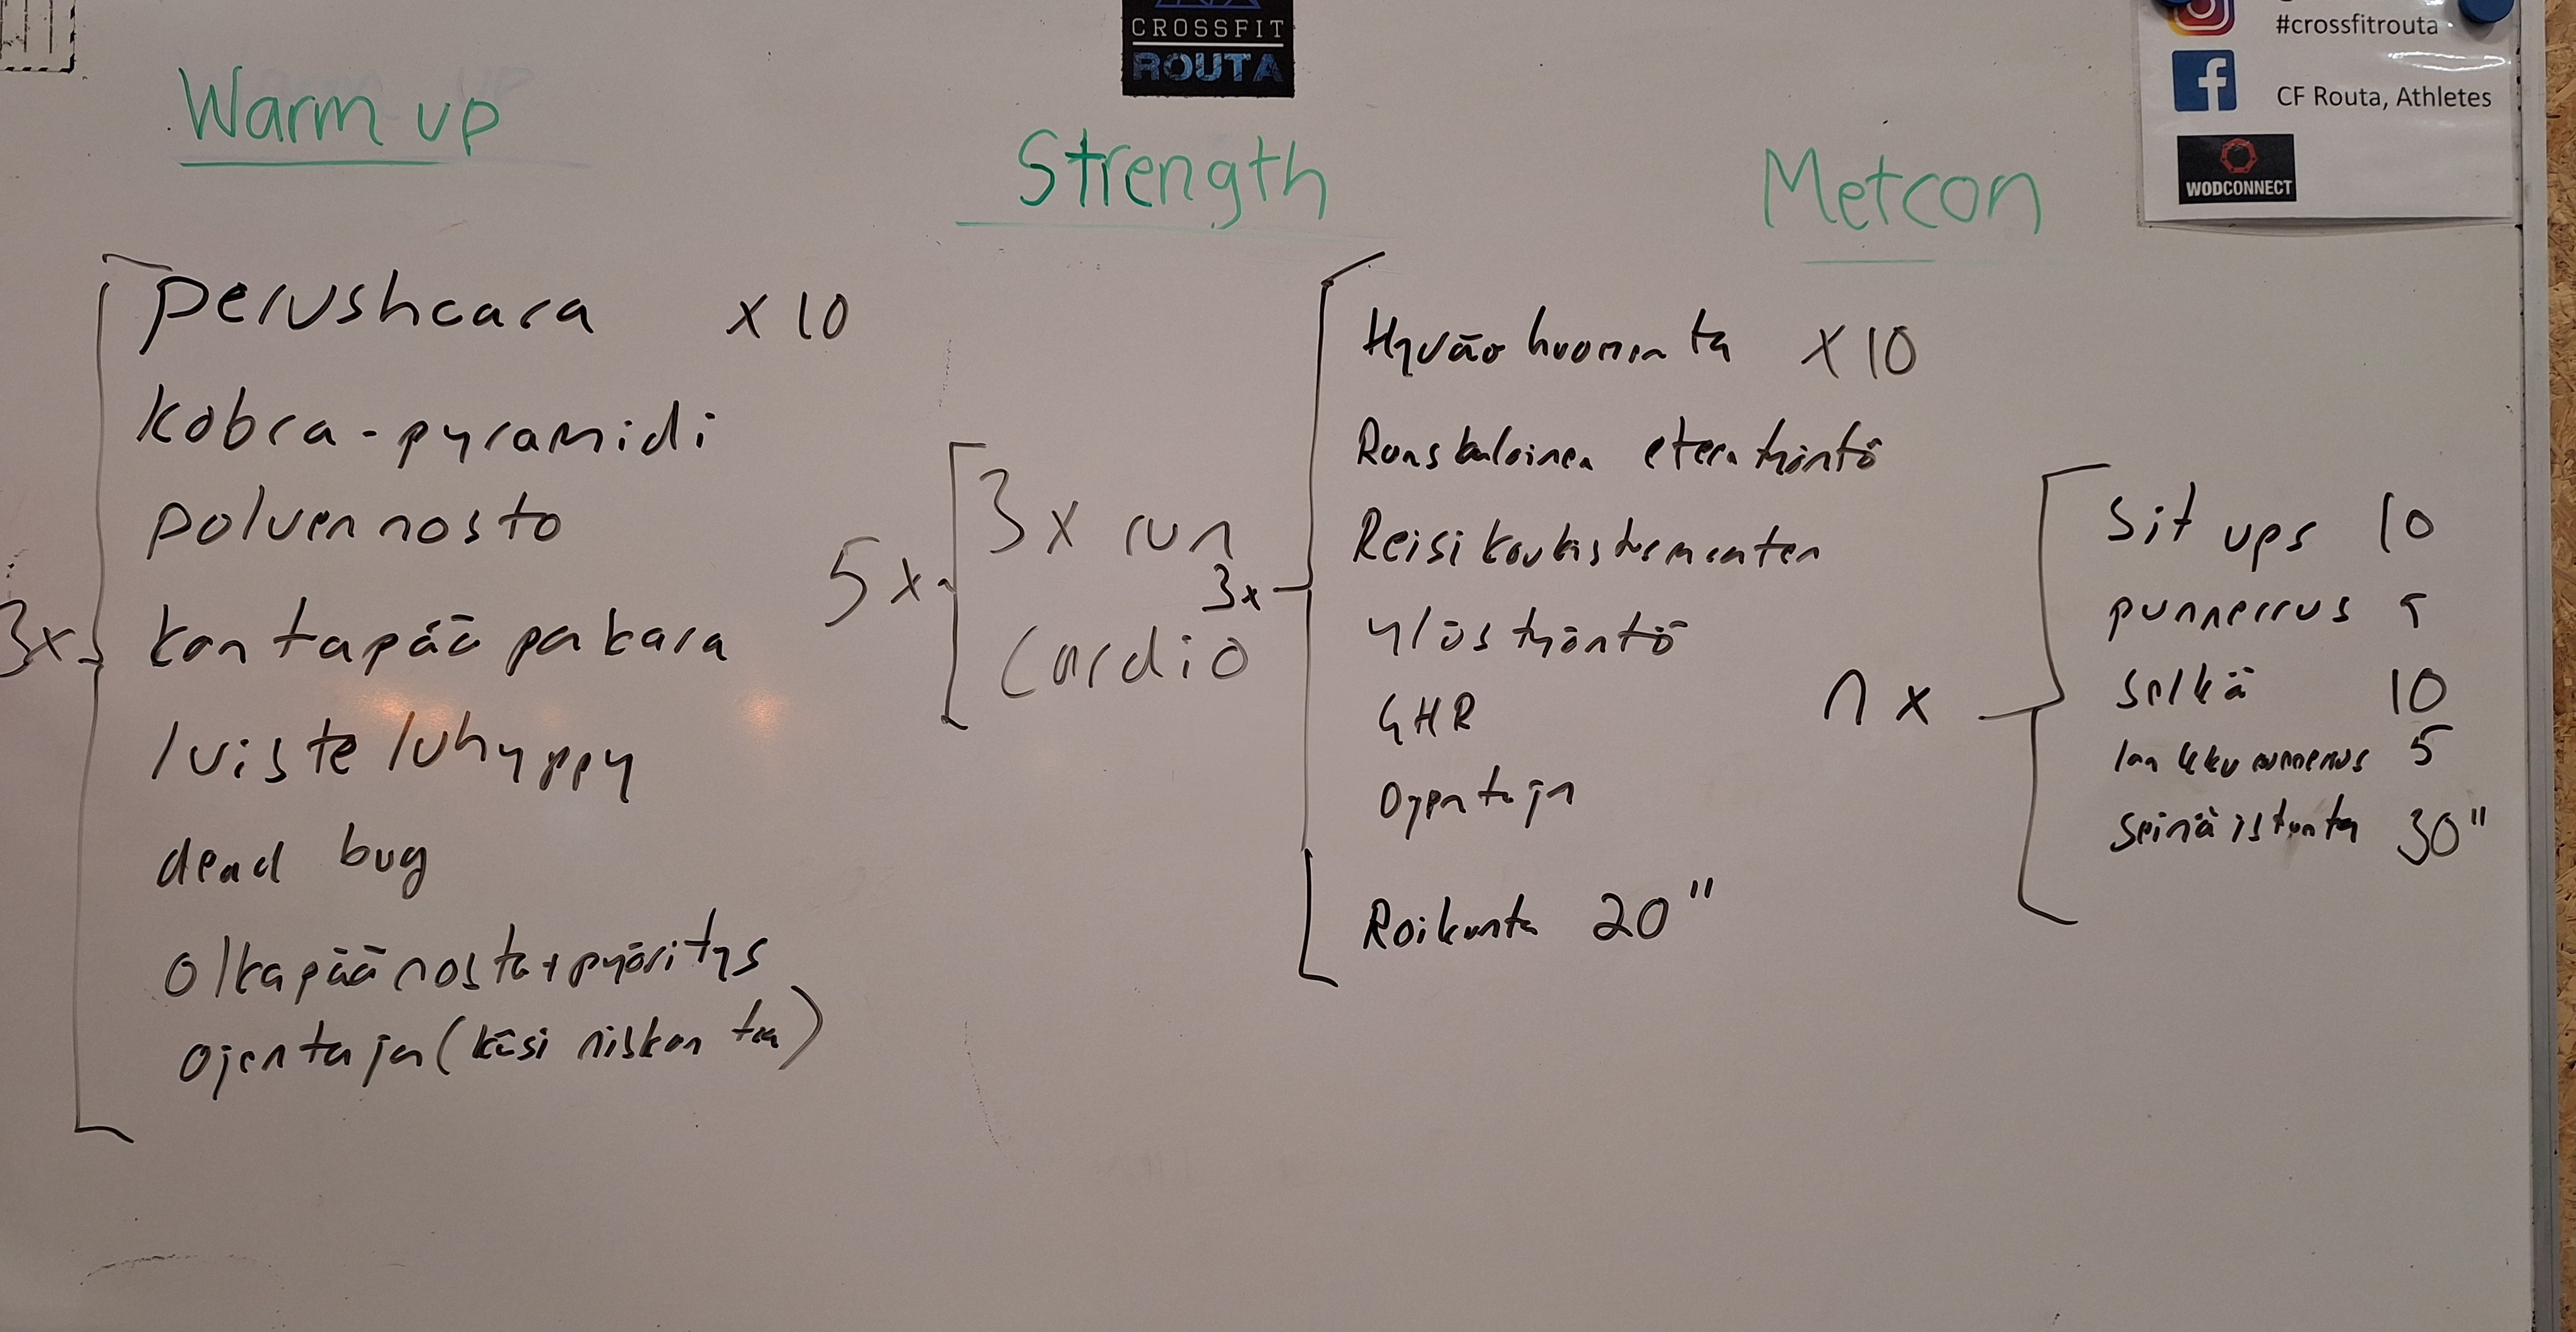 CROSSFIT
ROUTA
#crossfitrouta
CF Routa, Athletes
WODCONNECT
Warm up
3x
perushaara x 10
kobra-pyramidi
polvennosto
kantapää pakara
luisteluhyppy
dead bug
olkapäänosto + pyöritys
ojentaja (käsi niskan taa)
5x
3x run
cardio
Strength
3x
Hyvää huomenta x 10
Ranskalainen eteentyöntö
Reisikoukistus
ylöstyöntö
GHR
Ojentaja
Roikunta 20"
Metcon
n x
Sit ups 10
punnerrus 5
selkä 10
lankkupunnerrus 5
seinäistunta 30"